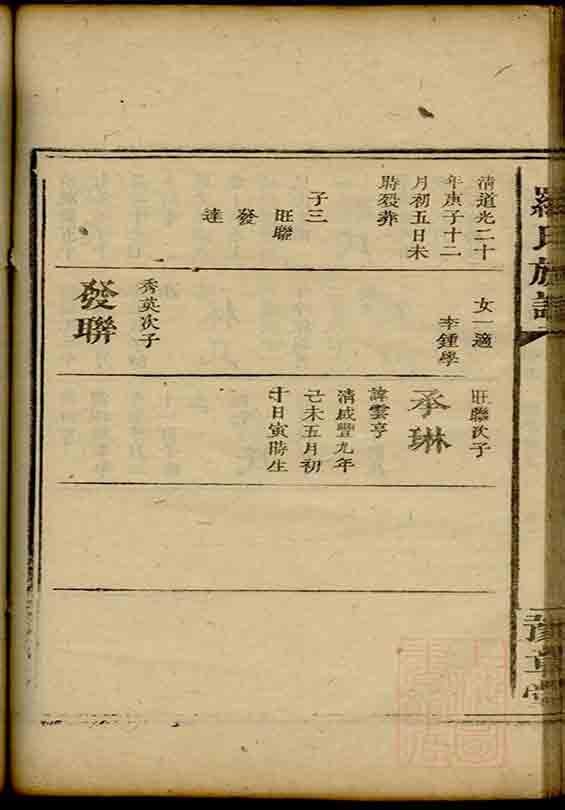 羅氏族譜
豫章堂
清道光二十
年庚子十二
月初五日未
時殁葬
子三
旺聯
發
達
女一適
李鍾學
秀英次子
發聯
旺聯次子
承琳
諱雲亨
清咸豐九年
己未五月初
十日寅時生